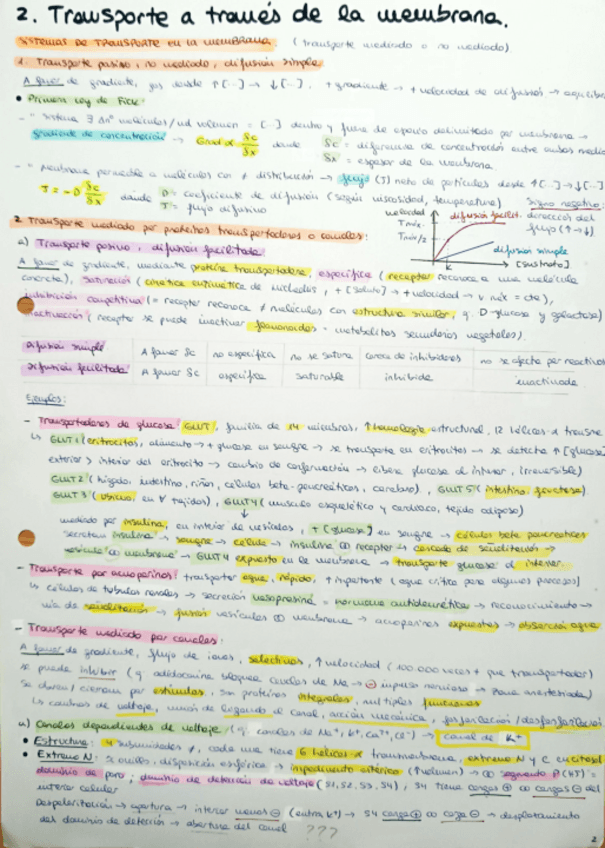 2. Transporte a través de la membrana.
SISTEMAS DE TRANSPORTE EN LA MEMBRANA. (transporte mediado o no mediado)
1. Transporte pasivo, no mediado, difusión simple
A favor de gradiente, gas desde ↑[...] → ↓[...], + gradiente → + velocidad de difusión → equilibrio
• Primera ley de Fick:
- "Sistema ∃ Δnº moléculas/ud volumen = [...] dentro y fuera de espacio delimitado por membrana →
gradiente de concentración → Grad α δc/δx donde δc = diferencia de concentración entre ambos medios
δx = espesor de la membrana.
- "Membrana permeable a moléculas con ≠ distribución → flujo (J) neto de partículas desde ↑[...] → ↓[...]
J = -D δc/δx donde D = coeficiente de difusión (según viscosidad, temperatura)
J = flujo difusivo
Signo negativo:
dirección del
flujo (↑→↓)
velocidad
Tmáx.
Tmáx/2
difusión facilit.
difusión simple
K
[sustrato]
2. Transporte mediado por proteínas transportadoras o canales:
a) Transporte pasivo, difusión facilitada
A favor de gradiente, mediante proteína transportadora, específica (receptor reconoce a una molécula
concreta), saturación (cinética enzimática de Michaelis, + [soluto] → + velocidad → v máx = cte),
inhibición competitiva (= receptor reconoce ≠ moléculas con estructura similar, ej. D-glucosa y galactosa)
inactivación (receptor se puede inactivar flavonoides = metabolitos secundarios vegetales).
Difusión simple A favor δc no específica no se satura carece de inhibidores no se afecta por reactivos
Difusión facilitada A favor δc específica saturable inhibida inactivada
Ejemplos:
- Transportadores de glucosa: GLUT, familia de 14 miembros, ↑homología estructural, 12 hélices-α transme
↳ GLUT1 (eritrocitos, alimento → + glucosa en sangre → se transporta en eritrocitos → se detecta ↑[glucosa]
exterior > interior del eritrocito → cambio de conformación → libera glucosa al interior, irreversible)
GLUT2 (hígado, intestino, riñón, células beta-pancreáticas, cerebro), GLUT5 (intestino, fructosa)
GLUT3 (ubicuo, en ∀ tejidos), GLUT4 (músculo esquelético y cardiaco, tejido adiposo)
mediado por insulina, en interior de vesículas, + [glucosa] en sangre → células beta pancreáticas
secretan insulina → sangre → célula → insulina ∞ receptor → cascada de señalización →
vesícula ∞ membrana → GLUT4 expuesto en la membrana → transporta glucosa al interior.
- Transporte por acuaporinas: transportar agua, rápido, + importante (agua crítica para algunos procesos)
↳ células de túbulos renales → secreción vasopresina = hormona antidiurética → reconocimiento →
vía de señalización → fusión vesículas ∞ membrana → acuaporinas expuestas → absorción agua
- Transporte mediado por canales:
A favor de gradiente, flujo de iones, selectivos, ↑velocidad (100.000 veces + que transportador)
se puede inhibir (ej. adidocaína bloquea canales de Na → ⊖ impulso nervioso → zona anestesiada)
Se abren/cierran por estímulos, son proteínas integrales, múltiples funciones
↳ cambios de voltaje, unión de ligando al canal, acción mecánica, fosforilación/desfosforilación
a) Canales dependientes de voltaje (ej. canales de Na⁺, K⁺, Ca²⁺, Cl⁻) → canal de K⁺
• Estructura: 4 subunidades ≠, cada una tiene 6 hélices-α transmembrana, extremo N y C citosol
• Extremo N: ovillo, disposición esférica → impedimento estérico (↑volumen) → ∞ segmento P (H5) =
dominio de poro; dominio de detección de voltaje (S1, S2, S3, S4), S4 tiene cargas ⊕ ∞ cargas ⊖ del
interior celular
Despolarización → apertura → interior menos ⊖ (entra K⁺) → S4 carga ⊕ ∞ carga ⊖ → desplazamiento
del dominio de detección → abertura del canal ???
2